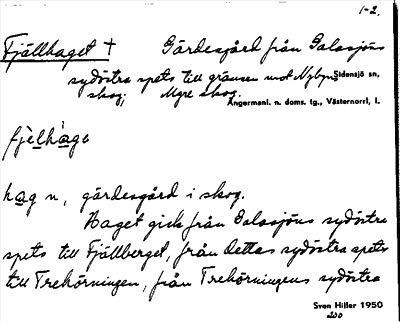 1-2.
Fjällhaget + Gärdesgård från Galasjöns
sydöstra spets till gränsen mot Nybyns Sidensjö sn.
skog; Myre skog. Ångermanl. n. doms. tg., Västernorrl. l.
fjèlhà̱gə
ha̱g n, gärdesgård i skog.
Haget gick från Galasjöns sydöstra
spets till Fjällberget, från dettas sydöstra spets
till Trehörningen, från Trehörningens sydöstra
Sven Hiller 1950
200